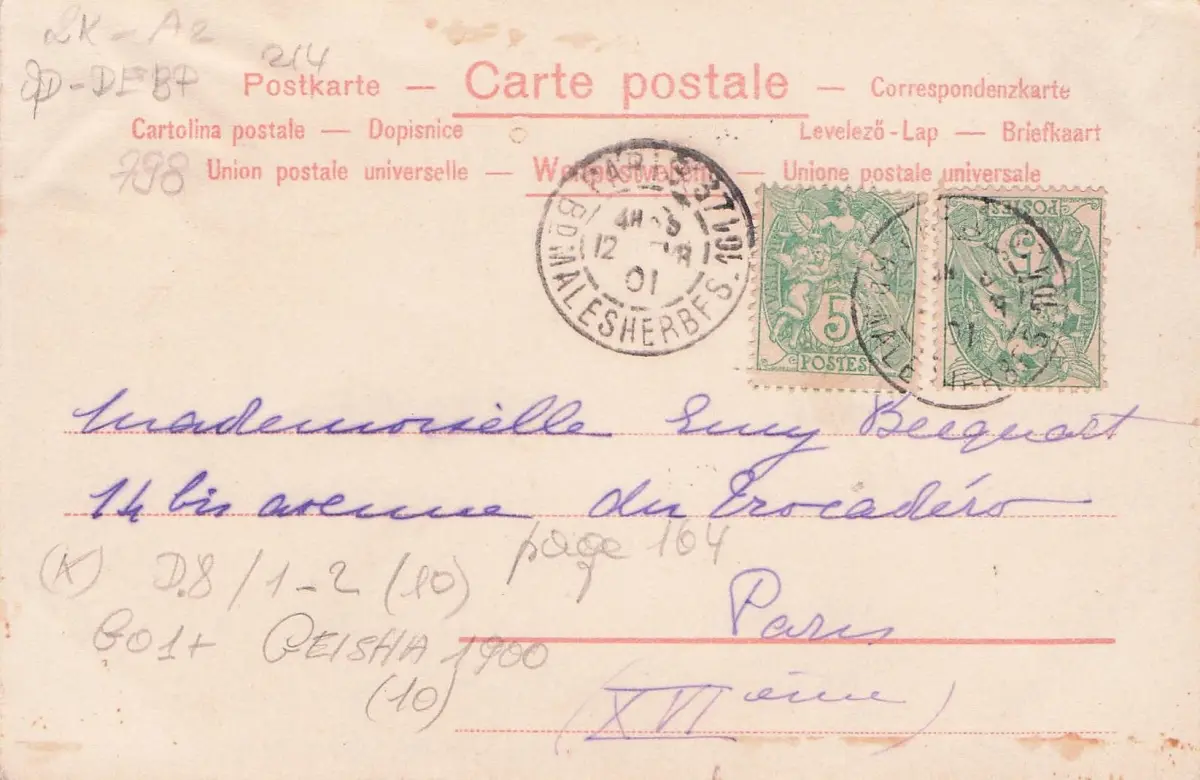 2K - A2
214
Postkarte — Carte postale — Correspondenzkarte
Cartolina postale — Dopisnice Levelező-Lap — Briefkaart
798 Union postale universelle — Unione postale universale
PARIS 37
12 01
BD MALESHERBES. 101
5
POSTES
5
POSTES
Mademoiselle Emy Becquart
14 bis avenue du Trocadéro
page 164
(K) D.8 / 1-2 (10)
Paris
GEISHA 1900
(10)
(XVI ème)